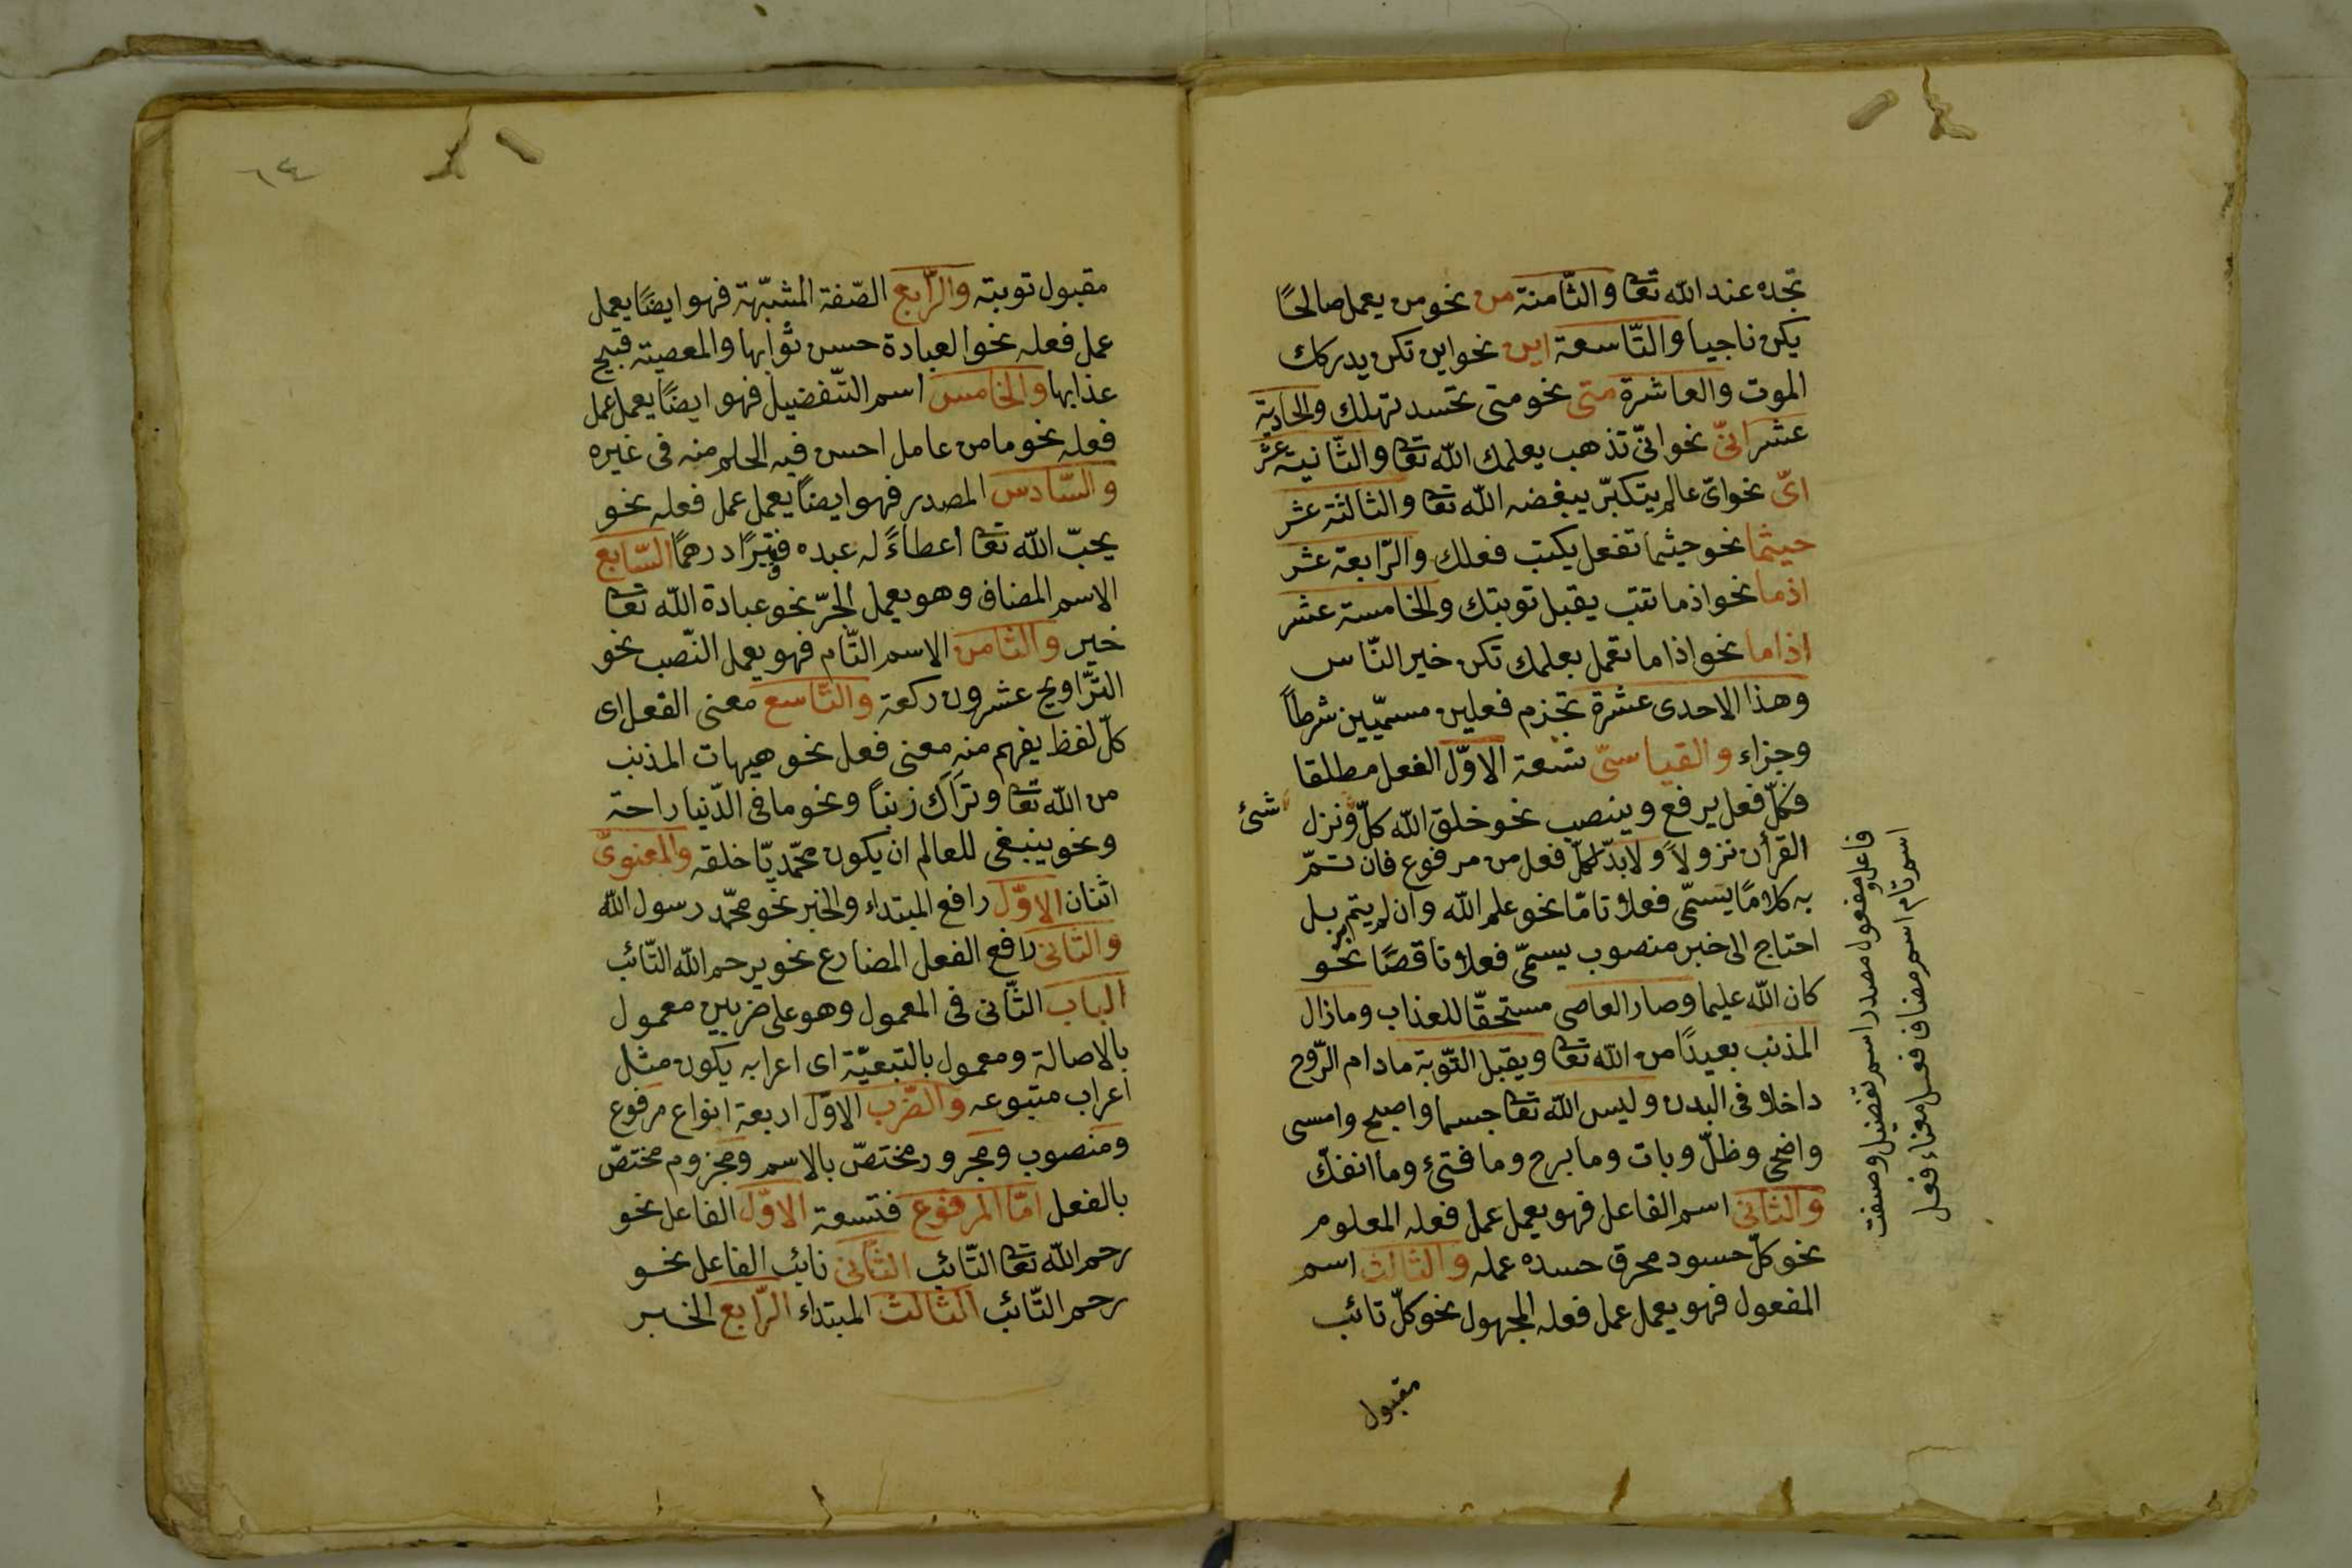 تجده عند الله تعا والثّامنة من نحو من يعمل صالحًا
يكن ناجيا والتّاسعة اين نحو اين تكن يدركك
الموت والعاشرة متى نحو متى تحسد تهلك والحادية
عشر انّى نحو انّى تذهب يعلمك الله تعا والثّانية عشر
اىّ نحو اىّ عالم يتكبّر يبغضه الله تعا والثالثة عشر
حيثما نحو حيثما تفعل يكتب فعلك والرّابعة عشر
اذما نحو اذما تتب يقبل توبتك والخامسة عشر
اذاما نحو اذاما تعمل بعلمك تكن خير النّاس
وهذا الاحدى عشرة تجزم فعلين مسمّيين شرطاً
وجزاء والقياسىّ تسعة الاوّل الفعل مطلقا
فكلّ فعل يرفع وينصب نحو خلق الله كلّ ونزل
شئ
القرأن نزولاً ولابدّ لكلّ فعل من مرفوع فان تمّ
به كلامًا يسمّى فعلا تامّا نحو علم الله وان لم يتم بل
احتاج الى خبر منصوب يسمّى فعلا ناقصًا نحو
كان الله عليما وصار العاصى مستحقّا للعذاب ومازال
المذنب بعيدًا من الله تعا ويقبل التّوبة مادام الرّوح
داخلا فى البدن وليس الله تعا جسما واصبح وامسى
واضحى وظلّ وبات ومابرح ومافتئ وما انفكّ
والثانى اسم الفاعل فهو يعمل عمل فعله المعلوم
نحو كلّ حسود محرق حسده عمله والثالث اسم
المفعول فهو يعمل عمل فعله المجهول نحو كلّ تائب
مقبول
فاعل ومفعول مصدر اسم تفضيل وصفت
اسم تام اسم مضاف فعل معناء فعل
٦٤
مقبول توبته والرّابع الصّفة المشبّهة فهو ايضًا يعمل
عمل فعله نحو العبادة حسن ثوابها والمعصية قبيح
عذابها والخامس اسم التّفضيل فهو ايضًا يعمل عمل
فعله نحو مامن عامل احسن فيه الحلم منه فى غيره
والسّادس المصدر فهو ايضًا يعمل عمل فعله نحو
يحبّ الله تعا أعطاءً له عبده فقيرًا درهمًا السّابع
الاسم المضاف وهو يعمل الجرّ نحو عبادة الله تعا
خير والثّامن الاسم التّام فهو يعمل النّصب نحو
التّراويح عشرون ركعة والتّاسع معنى الفعل اى
كلّ لفظ يفهم منه معنى فعل نحو هيهات المذنب
من الله تعا وتَرَاكِ ذنباً ونحو مافى الدّنيا راحة
ونحو ينبغى للعالم ان يكون محمّديّا خلقه والمعنوىّ
اثنان الاوّل رافع المبتداء والخبر نحو محمّد رسول الله
والثّانى رافع الفعل المضارع نحو يرحم الله التّائب
الباب الثّانى فى المعمول وهو على ضربين معمول
بالاصالة ومعمول بالتبعيّة اى اعرابه يكون مثل
اعراب متبوعه والضّرب الاوّل اربعة انواع مرفوع
ومنصوب ومجرور مختصّ بالاسم ومجزوم مختصّ
بالفعل امّا المرفوع فتسعة الاوّل الفاعل نحو
رحم الله تعا التّائب الثّانى نائب الفاعل نحو
رحم التّائب الثالث المبتداء الرّابع الخبر